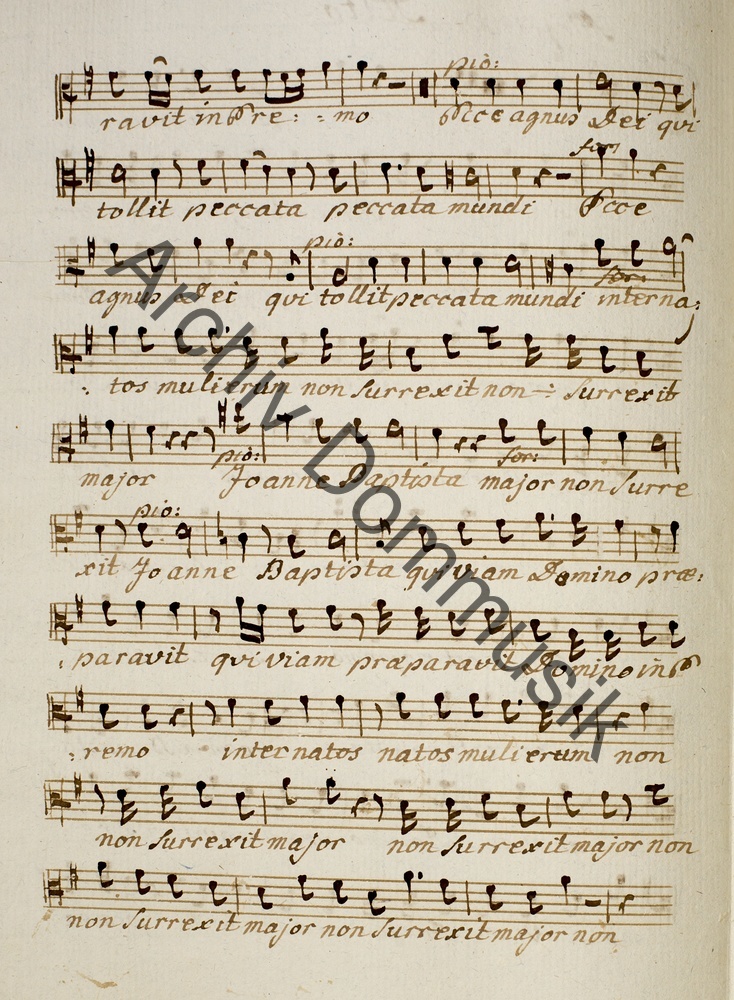 pio:
ravit in Ere: = mo Ecce agnus Dei qui
for:
tollit peccata peccata mundi Ecce
pio:
agnus Dei qui tollit peccata mundi interna:
for:
: tos mulierum non surrexit non -:- surrexit
pio: for:
major Joanne Baptista major non surre
pio:
xit Joanne Baptista qui viam Domino præ:
: paravit qui viam præparavit Domino in E
: remo internatos natos mulierum non
non surrexit major non surrexit major non
non surrexit major non surrexit major non
Archiv Dommusik